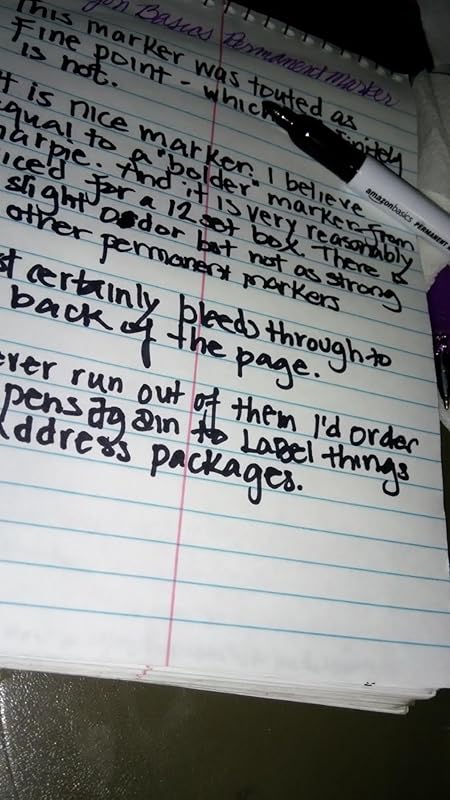 zon Basics Permanent Marker
This marker was touted as
Fine point - which
is not.
t is nice marker. I believe
equal to a "bolder" marker from
harpie. And it is very reasonably
iced for a 12 set box. There is
slight odor but not as strong
other permanent markers
st certainly bleeds through to
back of the page.
ever run out of them I'd order
pens again to Label things
ddress packages.
amazonbasics PERMANENT